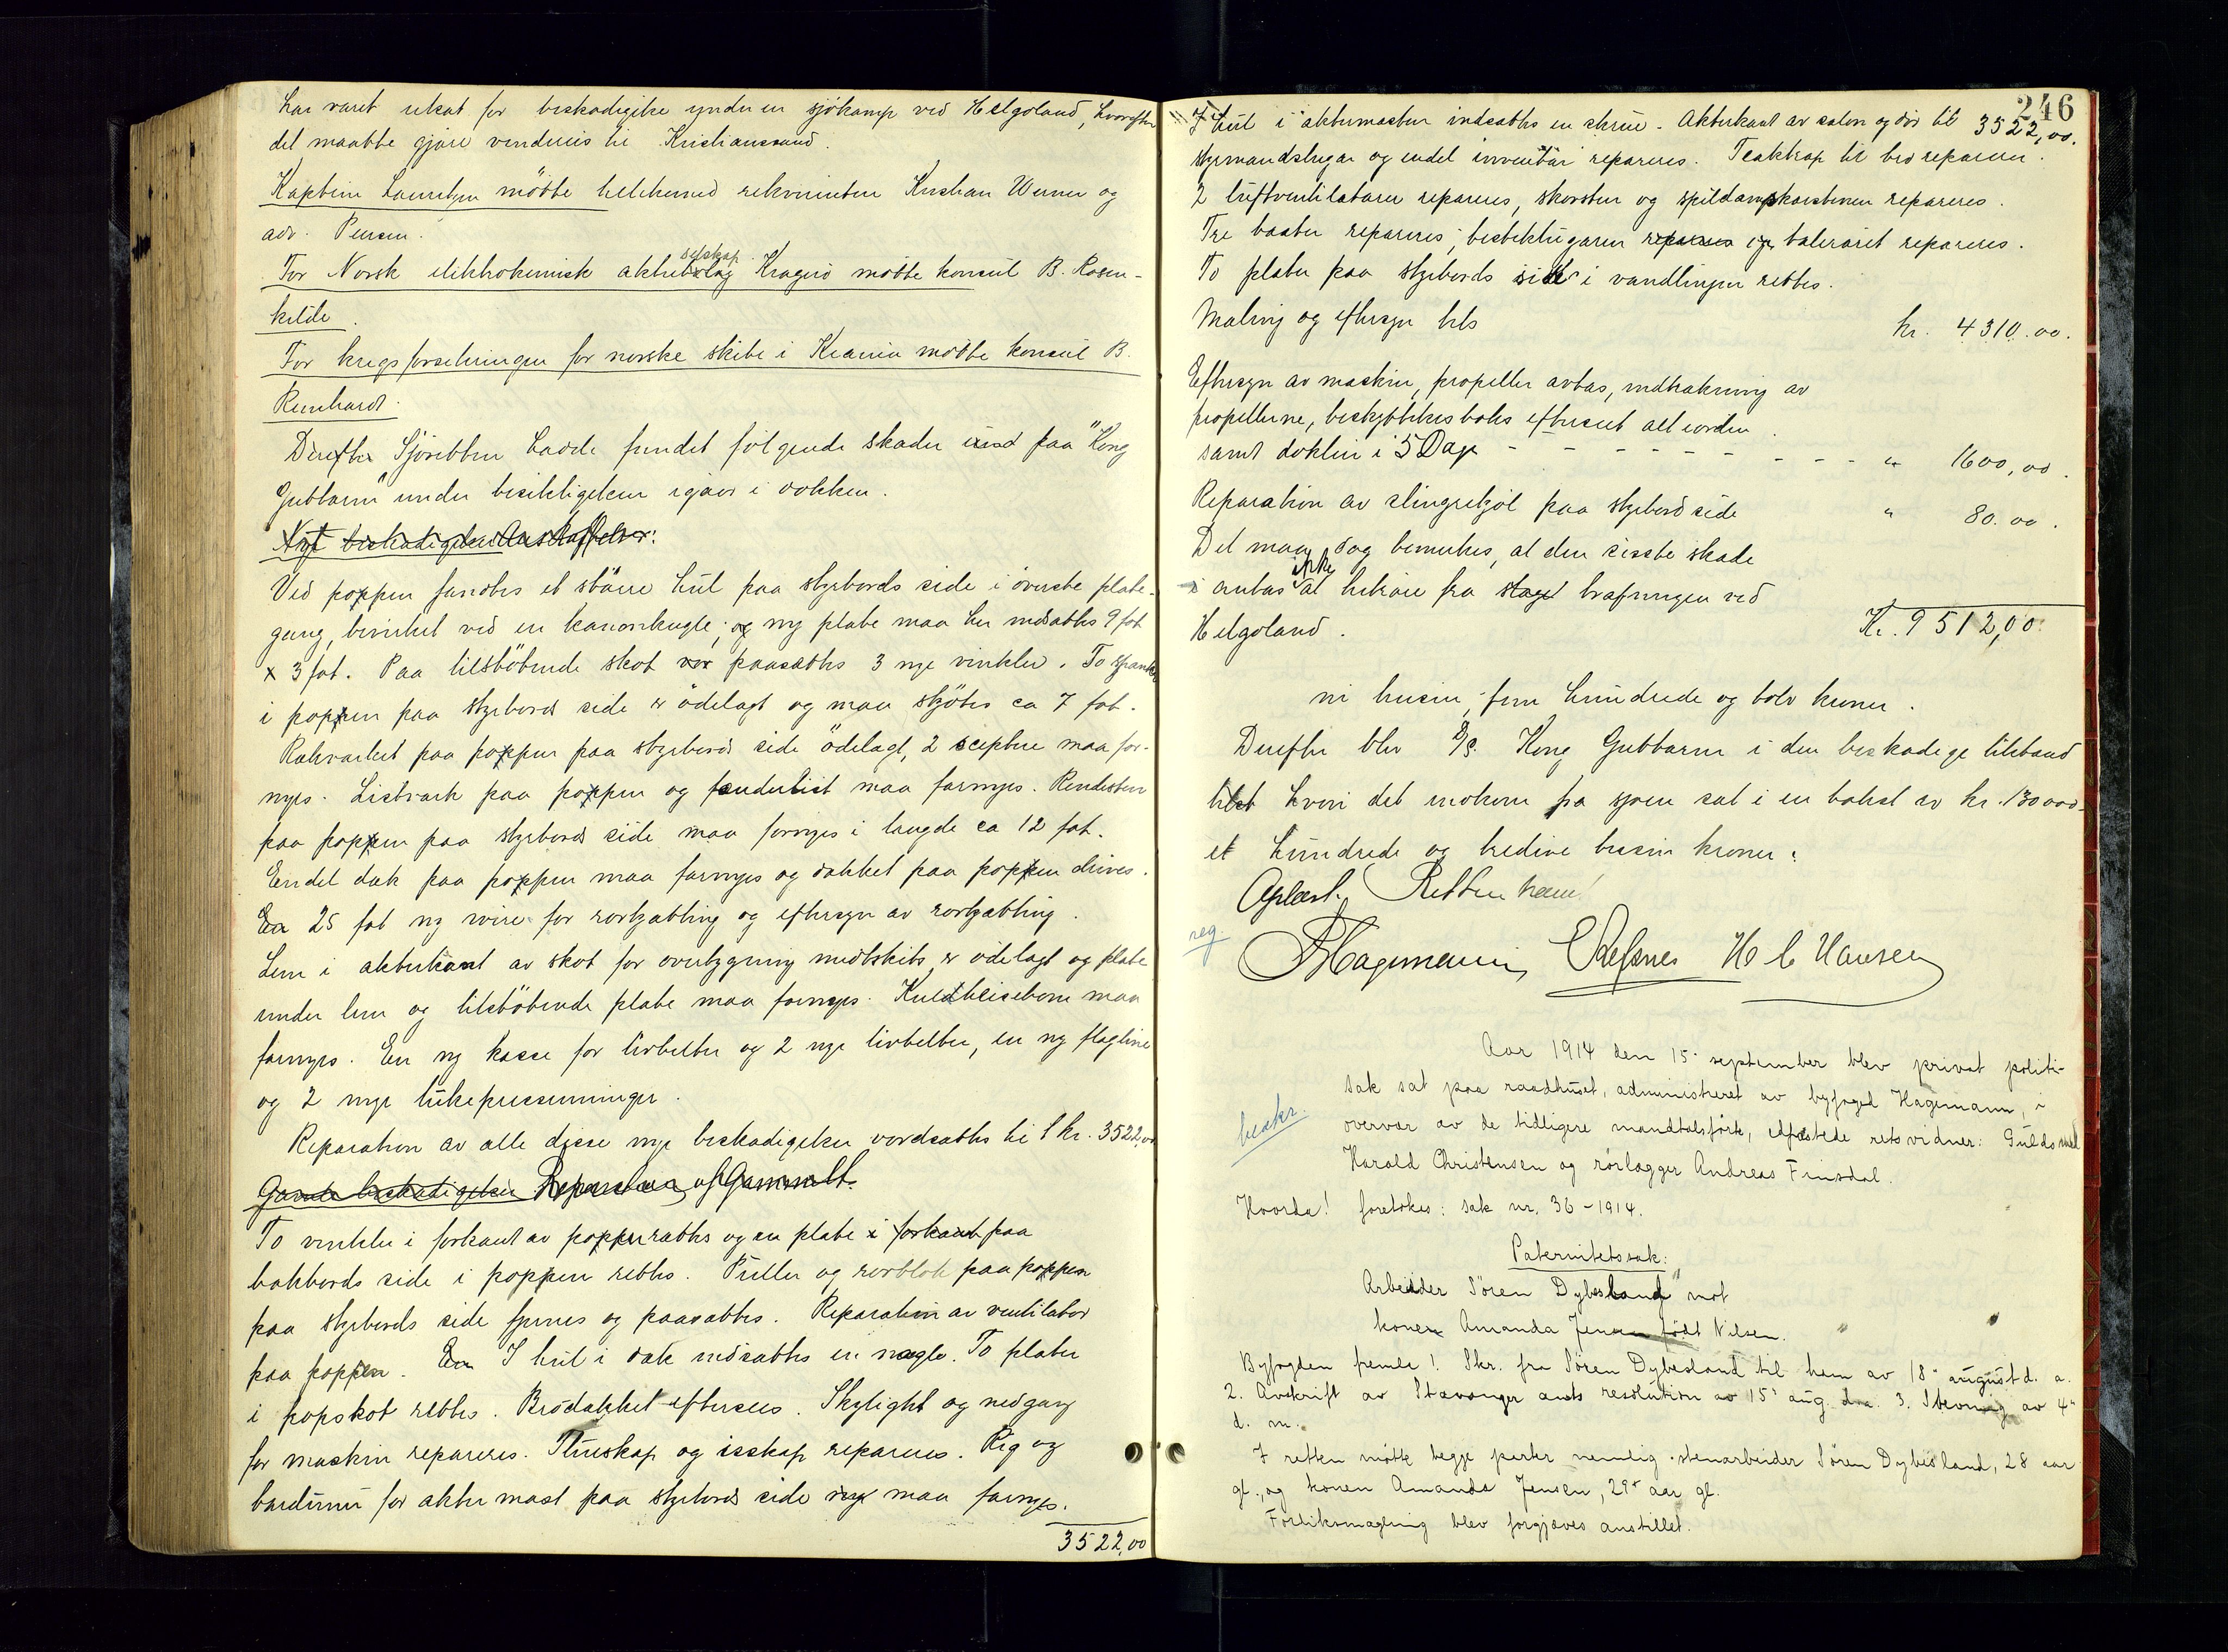 har været utsat for beskadigelse under en sjökamp ved Helgoland, hvorefter
det maatte gjöre vendereis til Kristianssand.
Kaptein Lauritzen mötte tillikemed rekvirenten Kristian Werner og
adv. Persen.
For Norsk elektrokemisk aktieselskap Kragerö mötte konsul B. Rosen-
kilde.
For krigsforsikringen for norske skibe i Krania mötte konsul B.
Reinhardt.
Derefter Sjöretten havde fundet fölgende skader paa "Kong
Guttorm" under besiktigelsen igaar i dokken.
Nye beskadigelser
Ved poppen fandtes et större hul paa styrbords side i överste plate-
gang, bevirket ved en kanonkugle; og ny plate maa her indsættes 9 fot
x 3 fot. Paa tilstötende skot paasættes 3 nye vinkler. To spanter
i poppen paa styrbords side er ödelagt og maa skjötes ca 7 fot.
Rækverket paa poppen paa styrbords side ödelagt, 2 sceptre maa for-
nyes. Listverk paa poppen og fenderlist maa fornyes. Rendesten
paa poppen paa styrbords side maa fornyes i længde ca 12 fot.
Endel dæk paa poppen maa fornyes og dækket paa poppen drives.
Ca 25 fot ny wire for rorkjætting og eftersyn av rorkjætting.
Lem i akterkant av skot for overbygning midtskibs er ödelagt og plate
under lem og tilstötende plate maa fornyes. Kulheisebom maa
fornyes. En ny kasse for livbelter og 2 nye livbelter, en ny flagline
og 2 nye lukepresenninger.
Reparation av alle disse nye beskadigelser værdsættes til kr. 3522,00
Gamle beskadigelser Reparation af Gammelt.
To vinkler i forkant av poppen rettes og en plate i forkant paa
bakbords side i poppen rettes. Puller og rorblok paa poppen
paa styrbords side fjernes og paasættes. Reparation av ventilator
paa poppen. I hul i dæk indsættes en nagle. To plater
i popskot rettes. Brodækket eftersees. Skylight og nedgang
for maskin repareres. Thueskap og isskap repareres. Rig og
barduner for akter mast paa styrbords side maa fornyes.
3522,00
246
I hul i aktermasten indsættes en skrue. Akterkant av salon og dör til 3522,00.
styrmandslugar og endel inventar repareres. Teaktrap til bro repareres.
2 luftventilatorer repareres, skorsten og spildampskorstenen repareres.
Tre baater repareres, bestiklugaren og talerøret repareres.
To plater paa styrbords side i vandlinjen rettes.
Maling og eftersyn tils kr. 4310.00.
Eftersyn av maskin, propeller avtas, indtrækning av
propellerne, beskyttelsesboks efterseet alt iorden
samt doklin i 5 Dage - - - - - - - - - " 1600,00.
Reparation av slingrekjöl paa styrbord side " 80.00.
Det maa dog bemerkes, at den sisste skade
antas ikke at hidröre fra træfningen ved
Helgoland. Kr. 9512,00.
ni tusin, fem hundrede og tolv kroner.
Derefter blev D/S. Kong Guttorm i den beskadige tilstand
hvori det indkom fra sjøen sat i en takst av kr. 130000-
et hundrede og tredive tusin kroner.
Oplæst. Retten hævet
reg.
Hagemann, E Refsnes H C Hansen
Aar 1914 den 15. september blev privat politi-
sak sat paa raadhuset, administreret av byfoged Hagemann, i
overvær av de tidligere mandtalsførte, edfæstede retsvidner: Guldsmed
Harald Christensen og rørlægger Andreas Finsdal.
beskr.
Hvorda! foretokes: sak nr. 36 - 1914.
Paternitetssak:
Arbeider Søren Dybesland mot
konen Amanda Jensen født Nilsen.
Byfogden fremla 1. Skr. fra Søren Dybesland til ham av 18. august d. a.
2. Avskrift av Stavanger amts resolution av 15. aug. d. a. 3. Stevning av 4.
d. m.
I retten møtte begge parter nemlig stenarbeider Søren Dybesland, 28 aar
gl., og konen Amanda Jensen, 29 aar gl.
Forliksmægling blev forgjæves anstillet.